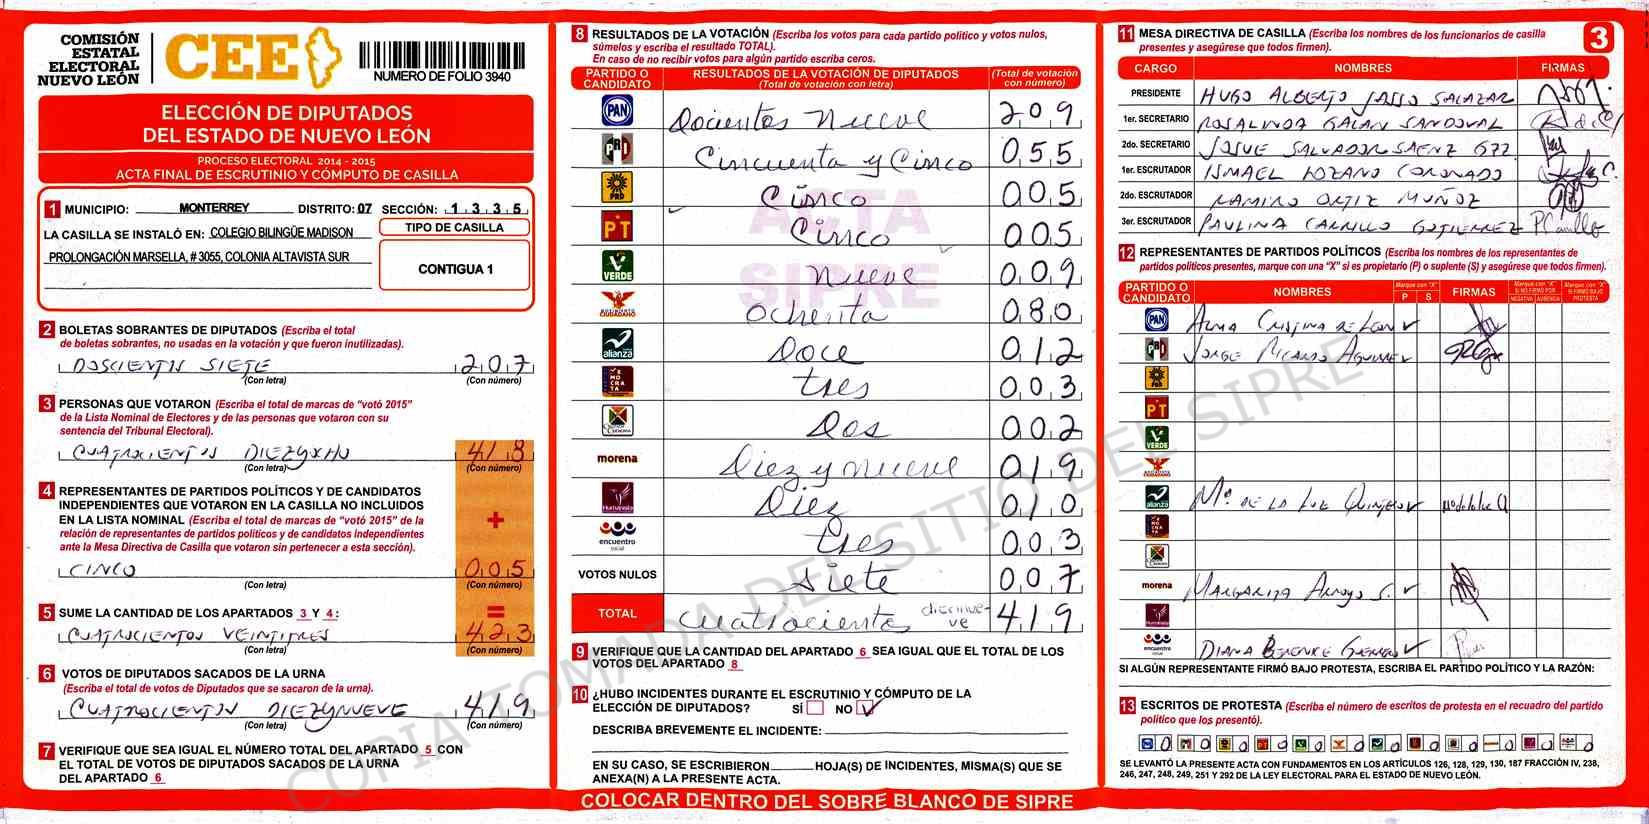 COMISIÓN
ESTATAL
ELECTORAL
NUEVO LEÓN
CEE
NUMERO DE FOLIO 3940
ELECCIÓN DE DIPUTADOS
DEL ESTADO DE NUEVO LEÓN
PROCESO ELECTORAL 2014 - 2015
ACTA FINAL DE ESCRUTINIO Y CÓMPUTO DE CASILLA
1 MUNICIPIO: MONTERREY DISTRITO: 07 SECCIÓN: 1335
LA CASILLA SE INSTALÓ EN: COLEGIO BILINGÜE MADISON
PROLONGACIÓN MARSELLA, # 3055, COLONIA ALTAVISTA SUR
TIPO DE CASILLA
CONTIGUA 1
2 BOLETAS SOBRANTES DE DIPUTADOS (Escriba el total
de boletas sobrantes, no usadas en la votación y que fueron inutilizadas).
DOSCIENTOS SIETE 207
(Con letra) (Con número)
3 PERSONAS QUE VOTARON (Escriba el total de marcas de “votó 2015”
de la Lista Nominal de Electores y de las personas que votaron con su
sentencia del Tribunal Electoral).
CUATROCIENTOS DIEZYOCHO 418
(Con letra) (Con número)
4 REPRESENTANTES DE PARTIDOS POLÍTICOS Y DE CANDIDATOS
INDEPENDIENTES QUE VOTARON EN LA CASILLA NO INCLUIDOS
EN LA LISTA NOMINAL (Escriba el total de marcas de “votó 2015” de la
relación de representantes de partidos políticos y de candidatos independientes
ante la Mesa Directiva de Casilla que votaron sin pertenecer a esta sección).
+
CINCO 005
(Con letra) (Con número)
5 SUME LA CANTIDAD DE LOS APARTADOS 3 Y 4: =
CUATROCIENTOS VEINTITRES 423
(Con letra) (Con número)
6 VOTOS DE DIPUTADOS SACADOS DE LA URNA
(Escriba el total de votos de Diputados que se sacaron de la urna).
CUATROCIENTOS DIEZYNUEVE 419
(Con letra) (Con número)
7 VERIFIQUE QUE SEA IGUAL EL NÚMERO TOTAL DEL APARTADO 5 CON
EL TOTAL DE VOTOS DE DIPUTADOS SACADOS DE LA URNA
DEL APARTADO 6
8 RESULTADOS DE LA VOTACIÓN (Escriba los votos para cada partido político y votos nulos,
súmelos y escriba el resultado TOTAL).
En caso de no recibir votos para algún partido escriba ceros.
PARTIDO O CANDIDATO RESULTADOS DE LA VOTACIÓN DE DIPUTADOS (Total de votación con letra) (Total de votación con número)
PAN Docientos Nueve 209
PRI Cincuenta y Cinco 055
PRD Cinco 005
PT Cinco 005
VERDE Nueve 009
MOVIMIENTO CIUDADANO Ochenta 080
alianza Doce 012
DEMOCRATA tres 003
CRUZADA CIUDADANA Dos 002
morena Diez y nueve 019
Humanista Diez 010
encuentro social tres 003
VOTOS NULOS siete 007
TOTAL cuatrocientos diecinueve 419
ACTA
SIPRE
9 VERIFIQUE QUE LA CANTIDAD DEL APARTADO 6 SEA IGUAL QUE EL TOTAL DE LOS
VOTOS DEL APARTADO 8
10 ¿HUBO INCIDENTES DURANTE EL ESCRUTINIO Y CÓMPUTO DE LA
ELECCIÓN DE DIPUTADOS? SÍ NO
DESCRIBA BREVEMENTE EL INCIDENTE:
EN SU CASO, SE ESCRIBIERON HOJA(S) DE INCIDENTES, MISMA(S) QUE SE
ANEXA(N) A LA PRESENTE ACTA.
COLOCAR DENTRO DEL SOBRE BLANCO DE SIPRE
11 MESA DIRECTIVA DE CASILLA (Escriba los nombres de los funcionarios de casilla
presentes y asegúrese que todos firmen).
3
CARGO NOMBRES FIRMAS
PRESIDENTE HUGO ALBERTO JASSO SALAZAR
1er. SECRETARIO ROSALINDA GALAN SANDOVAL
2do. SECRETARIO JOSUE SALVADOR SAENZ
1er. ESCRUTADOR ISMAEL LOZANO CORONADO
2do. ESCRUTADOR RAMIRO ORTIZ MUÑOZ
3er. ESCRUTADOR PAULINA CARRILLO GUTIERREZ P Carrillo
12 REPRESENTANTES DE PARTIDOS POLÍTICOS (Escriba los nombres de los representantes de
partidos políticos presentes, marque con una “X” si es propietario (P) o suplente (S) y asegúrese que todos firmen).
PARTIDO O CANDIDATO NOMBRES Marque con “X” P S FIRMAS Marque con “X” SI NO FIRMÓ POR NEGATIVA AUSENCIA Marque con “X” SI FIRMÓ BAJO PROTESTA
PAN ALMA CRISTINA DE LEON
PRI JORGE RICARDO AGUIRRE
PRD
PT
VERDE
alianza Mª DE LA LUZ QUINTERO
morena MARGARITA ARROYO S.
encuentro social DIANA BERENICE GUERRERO
SI ALGÚN REPRESENTANTE FIRMÓ BAJO PROTESTA, ESCRIBA EL PARTIDO POLÍTICO Y LA RAZÓN:
13 ESCRITOS DE PROTESTA (Escriba el número de escritos de protesta en el recuadro del partido
político que los presentó).
0 0 0 0 0 0 0 0 0 0 0 0
SE LEVANTÓ LA PRESENTE ACTA CON FUNDAMENTOS EN LOS ARTÍCULOS 126, 128, 129, 130, 187 FRACCIÓN IV, 238,
246, 247, 248, 249, 251 Y 292 DE LA LEY ELECTORAL PARA EL ESTADO DE NUEVO LEÓN.
COPIA TOMADA DEL SITIO DEL SIPRE